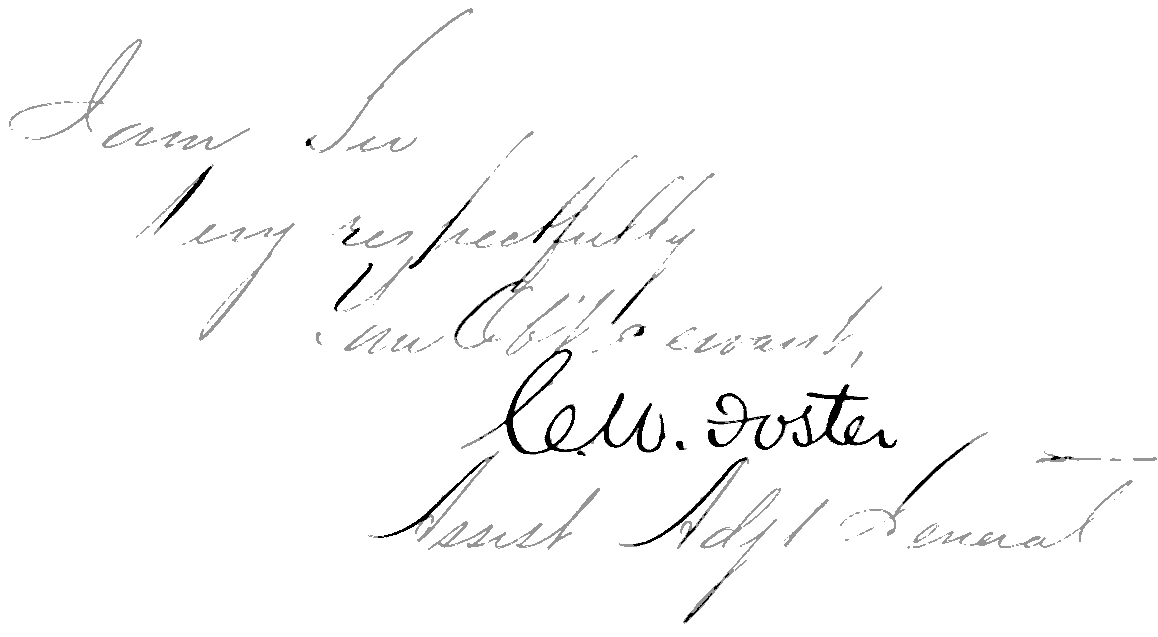 I am Sir
Very respectfully
Your Obt Servant,
C. W. Foster
Assist Adjt General